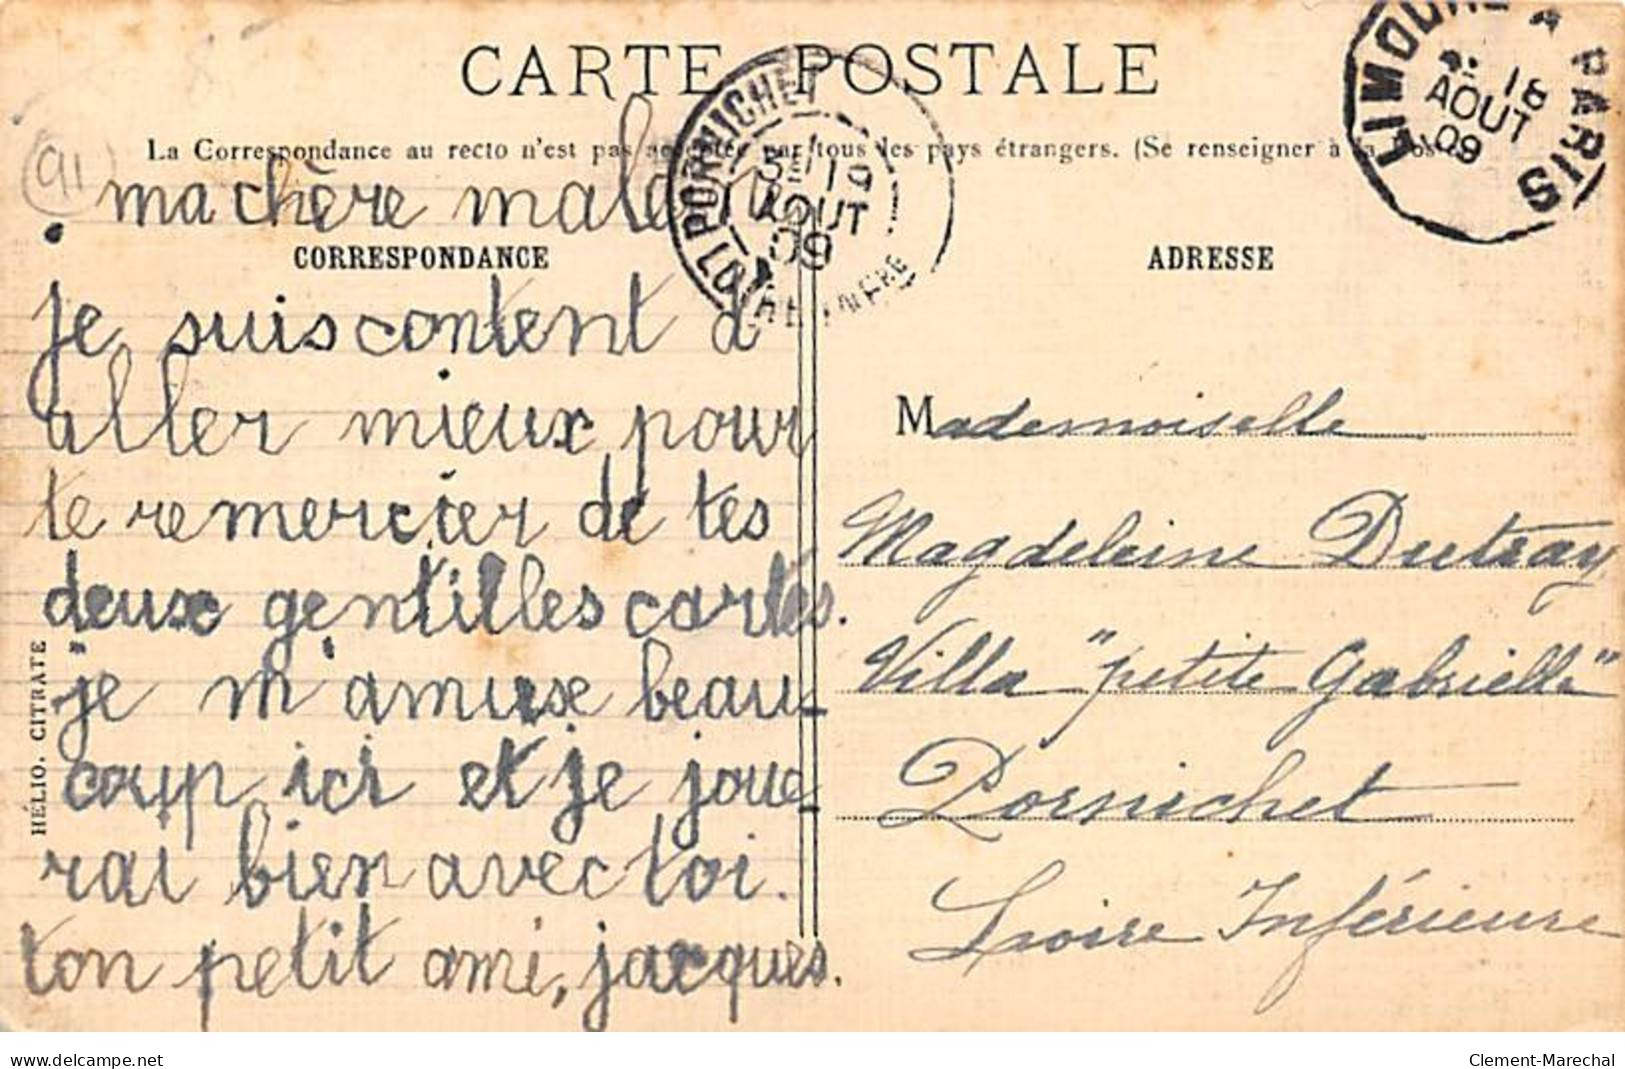 CARTE POSTALE
La Correspondance au recto n'est pas acceptée par tous les pays étrangers. (Se renseigner à la Poste
91
CORRESPONDANCE
ma chère malen
je suis content d'
aller mieux pour
te remercier de tes
deux gentilles cartes.
je m'amuse beau-
coup ici et je joue-
rai bien avec toi.
ton petit ami, jacques.
HÉLIO. CITRATE
PORNICHET
19
AOUT
09
LOIRE INFRE
LIMOURS A PARIS
18
AOUT
09
ADRESSE
Mademoiselle
Magdeleine Dutray
Villa "petite Gabrielle"
Pornichet
Loire Inférieure
www.delcampe.net
Clement-Marechal